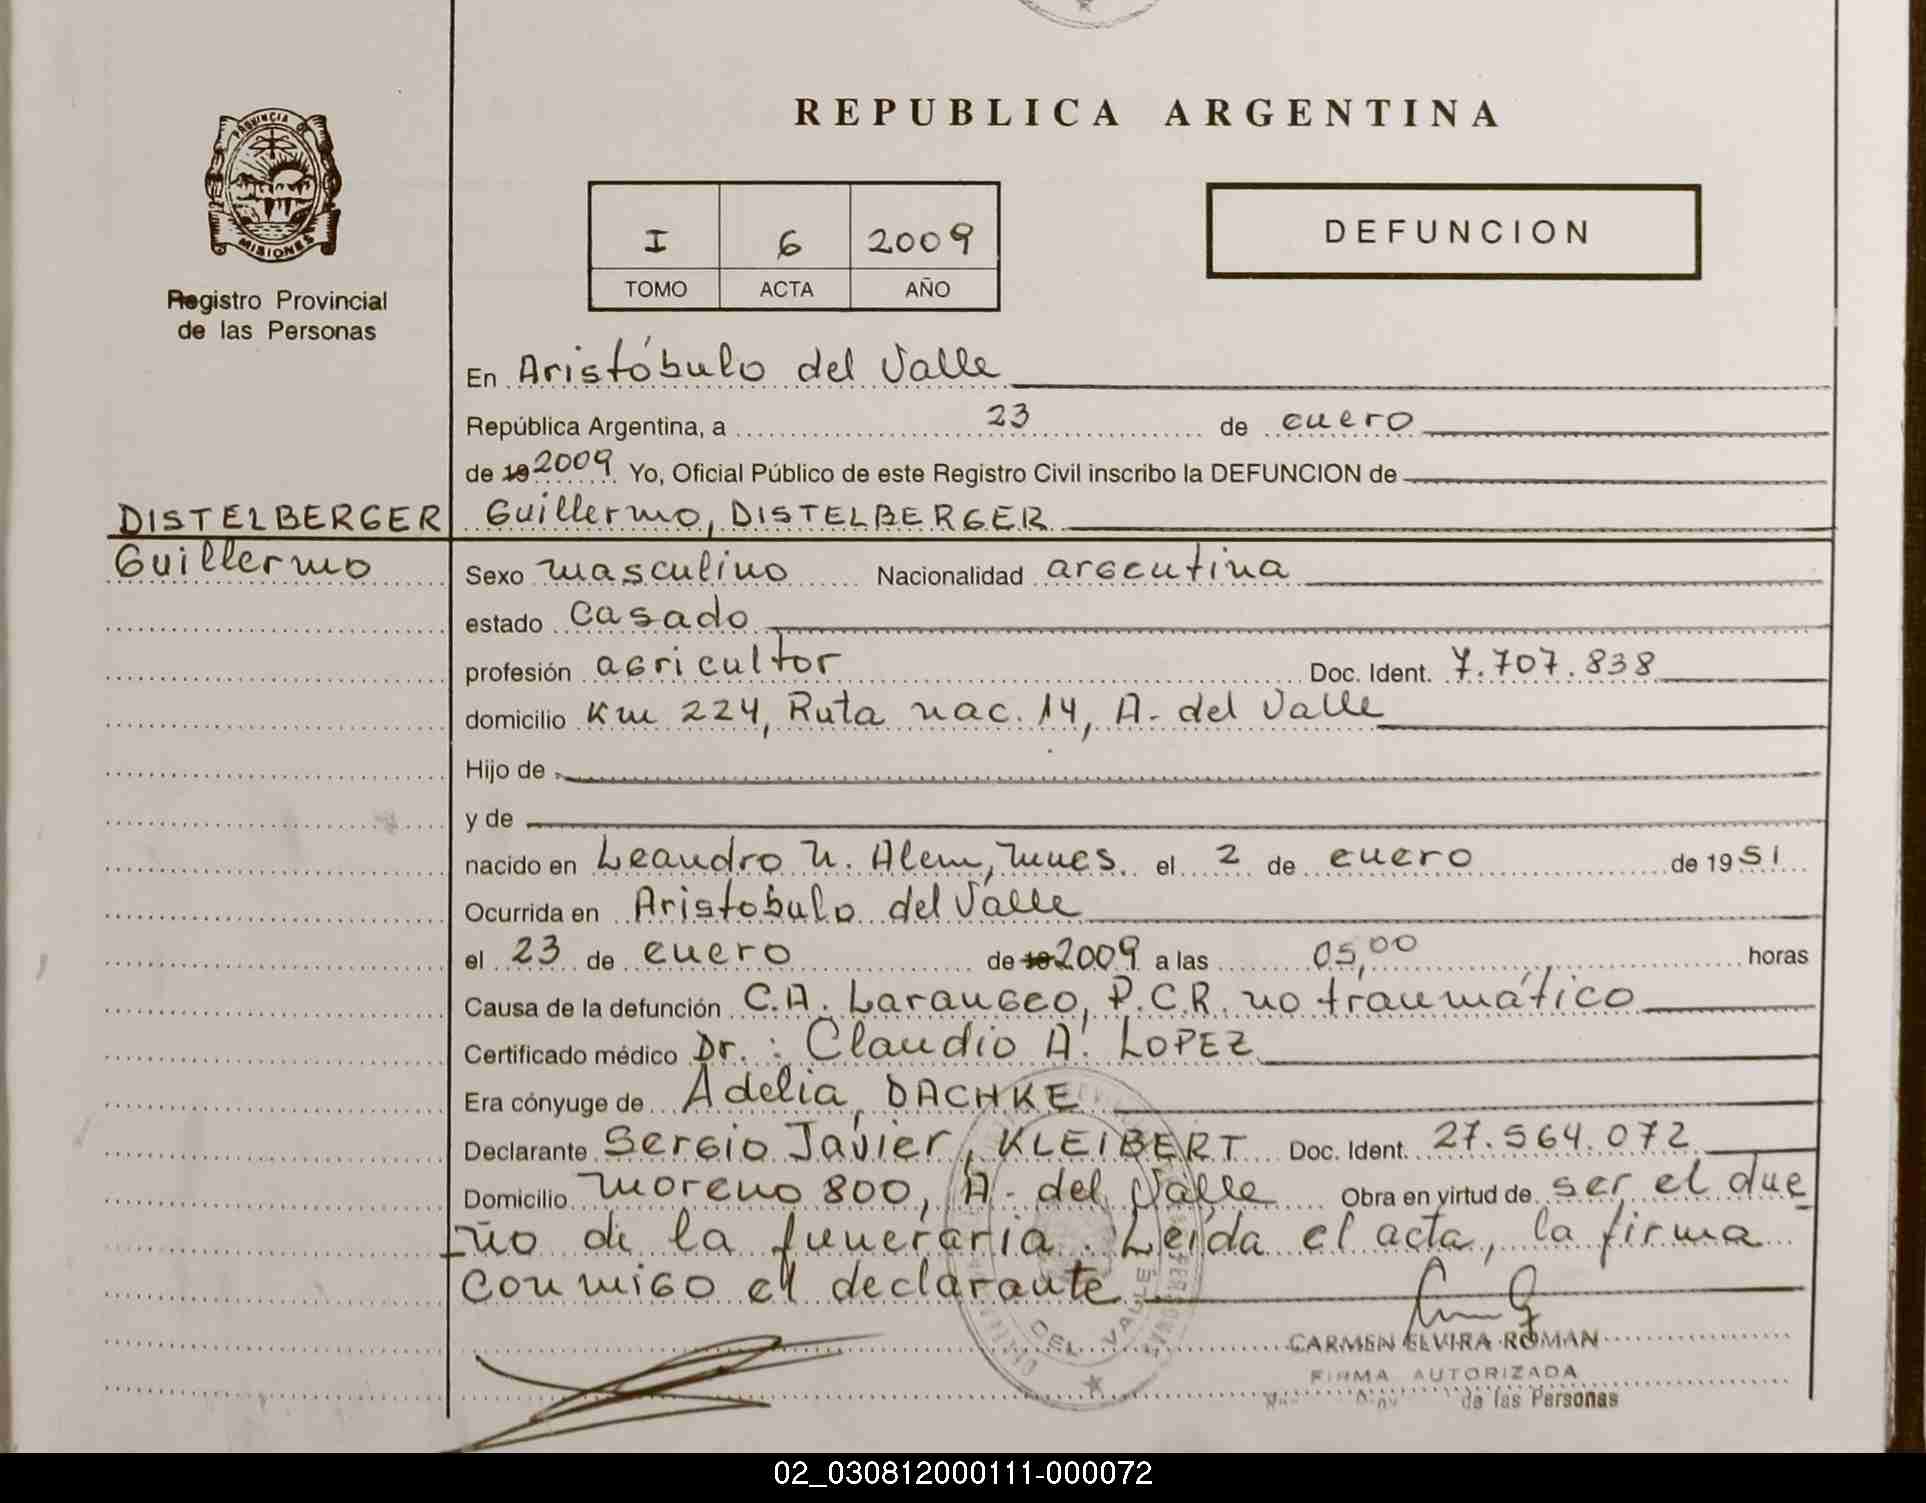 REPUBLICA ARGENTINA
PROVINCIA DE
MISIONES
Registro Provincial
de las Personas
I 6 2009
TOMO ACTA AÑO
DEFUNCION
En Aristóbulo del Valle
República Argentina, a 23 de enero
de 19 2009 Yo, Oficial Público de este Registro Civil inscribo la DEFUNCION de
DISTELBERGER Guillermo, DISTELBERGER
Guillermo Sexo masculino Nacionalidad argentina
estado casado
profesión agricultor Doc. Ident. 7.707.838
domicilio Km 224, Ruta nac. 14, A. del Valle
Hijo de
y de
nacido en Leandro N. Alem, Mnes. el 2 de enero de 1951
Ocurrida en Aristobulo del Valle
el 23 de enero de 19 2009 a las 05,00 horas
Causa de la defunción C.A. Larangeo, P.C.R. no traumático
Certificado médico Dr.: Claudio A. LOPEZ
Era cónyuge de Adelia, DACHKE
Declarante Sergio Javier, KLEIBERT Doc. Ident. 27.564.072
Domicilio Moreno 800, A. del Valle Obra en virtud de ser el due
ño de la funeraria. Leída el acta, la firma
conmigo el declarante
DEL VALLE
CARMEN ELVIRA ROMAN
FIRMA AUTORIZADA
de las Personas
02_030812000111-000072